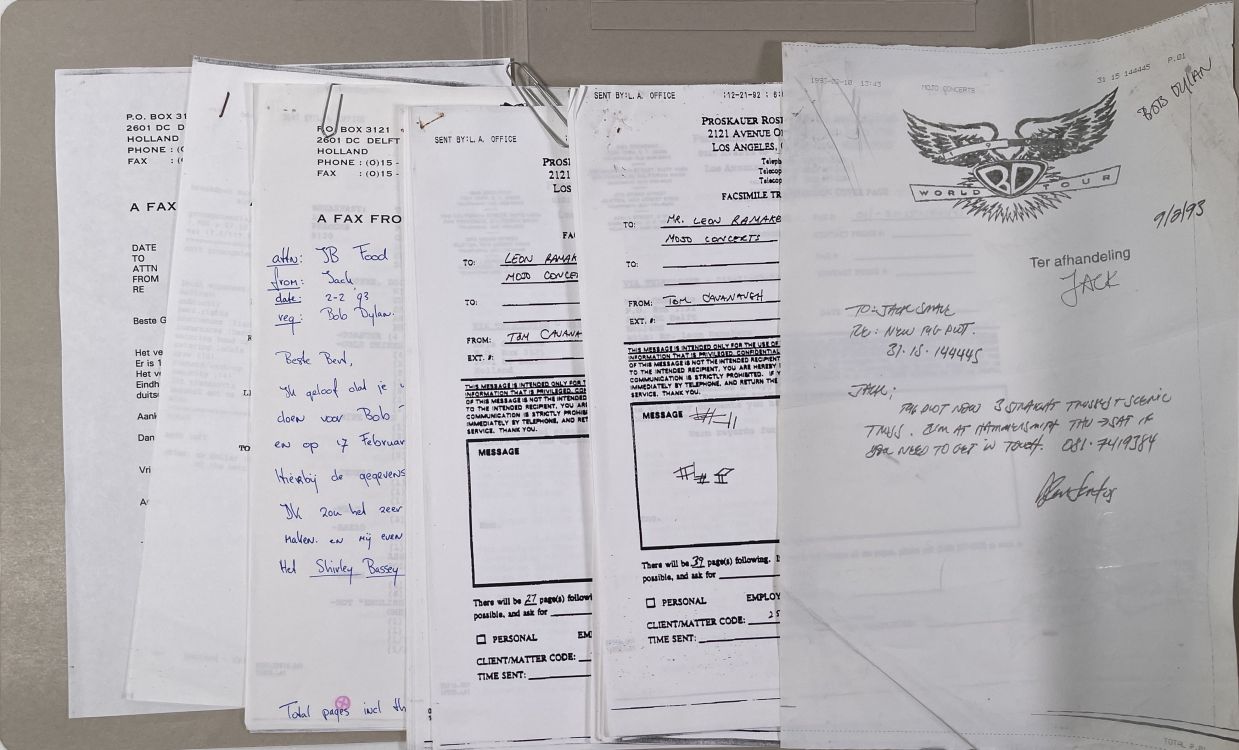 P.O. BOX 31
2601 DC D
HOLLAND
PHONE : (
FAX : (
A FAX
DATE
TO
ATTN
FROM
RE
Beste G
Het ve
Er is 1
Het v
Eindh
duits
Aank
Dan
Vri
P.O. BOX 3121
2601 DC DELFT
HOLLAND
PHONE : (0)15 -
FAX : (0)15 -
A FAX FRO
attn: JB Food
from: Jack
date: 2-2 93
req: Bob Dylan.
Beste Bert,
Ik geloof dat je
doen voor Bob
en op 17 Februar
Hierbij de gegevens
Ik zou het zeer
maken. en mij even
Het Shirley Bassey
Total pages incl th
SENT BY:L. A. OFFICE
PROSI
2121
LOS
FA
TO: LEON RAMAK
MOJO CONCE
TO:
FROM: TOM CAVANA
EXT. #:
THIS MESSAGE IS INTENDED ONLY FOR T
INFORMATION THAT IS PRIVILEGED, CO
OF THIS MESSAGE IS NOT THE INTENDED
TO THE INTENDED RECIPIENT, YOU ARE
COMMUNICATION IS STRICTLY PROHIB
IMMEDIATELY BY TELEPHONE, AND RET
SERVICE. THANK YOU.
MESSAGE
There will be 27 page(s) follow
possible, and ask for
PERSONAL EM
CLIENT/MATTER CODE:
TIME SENT:
SENT BY:L. A. OFFICE :12-21-92 :
PROSKAUER ROS
2121 AVENUE O
LOS ANGELES,
Telep
Telecop
Telecop
FACSIMILE TR
TO: MR. LEON RAMAKE
MOJO CONCERTS
TO:
FROM: TOM CAVANAUGH
EXT. #:
THIS MESSAGE IS INTENDED ONLY FOR THE USE OF
INFORMATION THAT IS PRIVILEGED, CONFIDENTIAL
OF THIS MESSAGE IS NOT THE INTENDED RECIPIENT
TO THE INTENDED RECIPIENT, YOU ARE HEREBY
COMMUNICATION IS STRICTLY PROHIBITED. IF Y
IMMEDIATELY BY TELEPHONE, AND RETURN THE
SERVICE. THANK YOU.
MESSAGE
There will be 39 page(s) following. I
possible, and ask for
PERSONAL EMPLOY
CLIENT/MATTER CODE: 25
TIME SENT:
1993-02-10 13:43 MOJO CONCERTS 31 15 144445 P.01
BOB DYLAN
WORLD BD TOUR
9/2/93
Ter afhandeling
JACK
TO: JACK SMALL
RE: NEW RIG PLOT.
31.15.144445
JACK;
RIG PLOT NEW 3 STRAIGHT TRUSSES + SCENIC
TRUSS. I'M AT HAMMERSMITH THU → SAT IF
YOU NEED TO GET IN TOUCH. 081.7419384